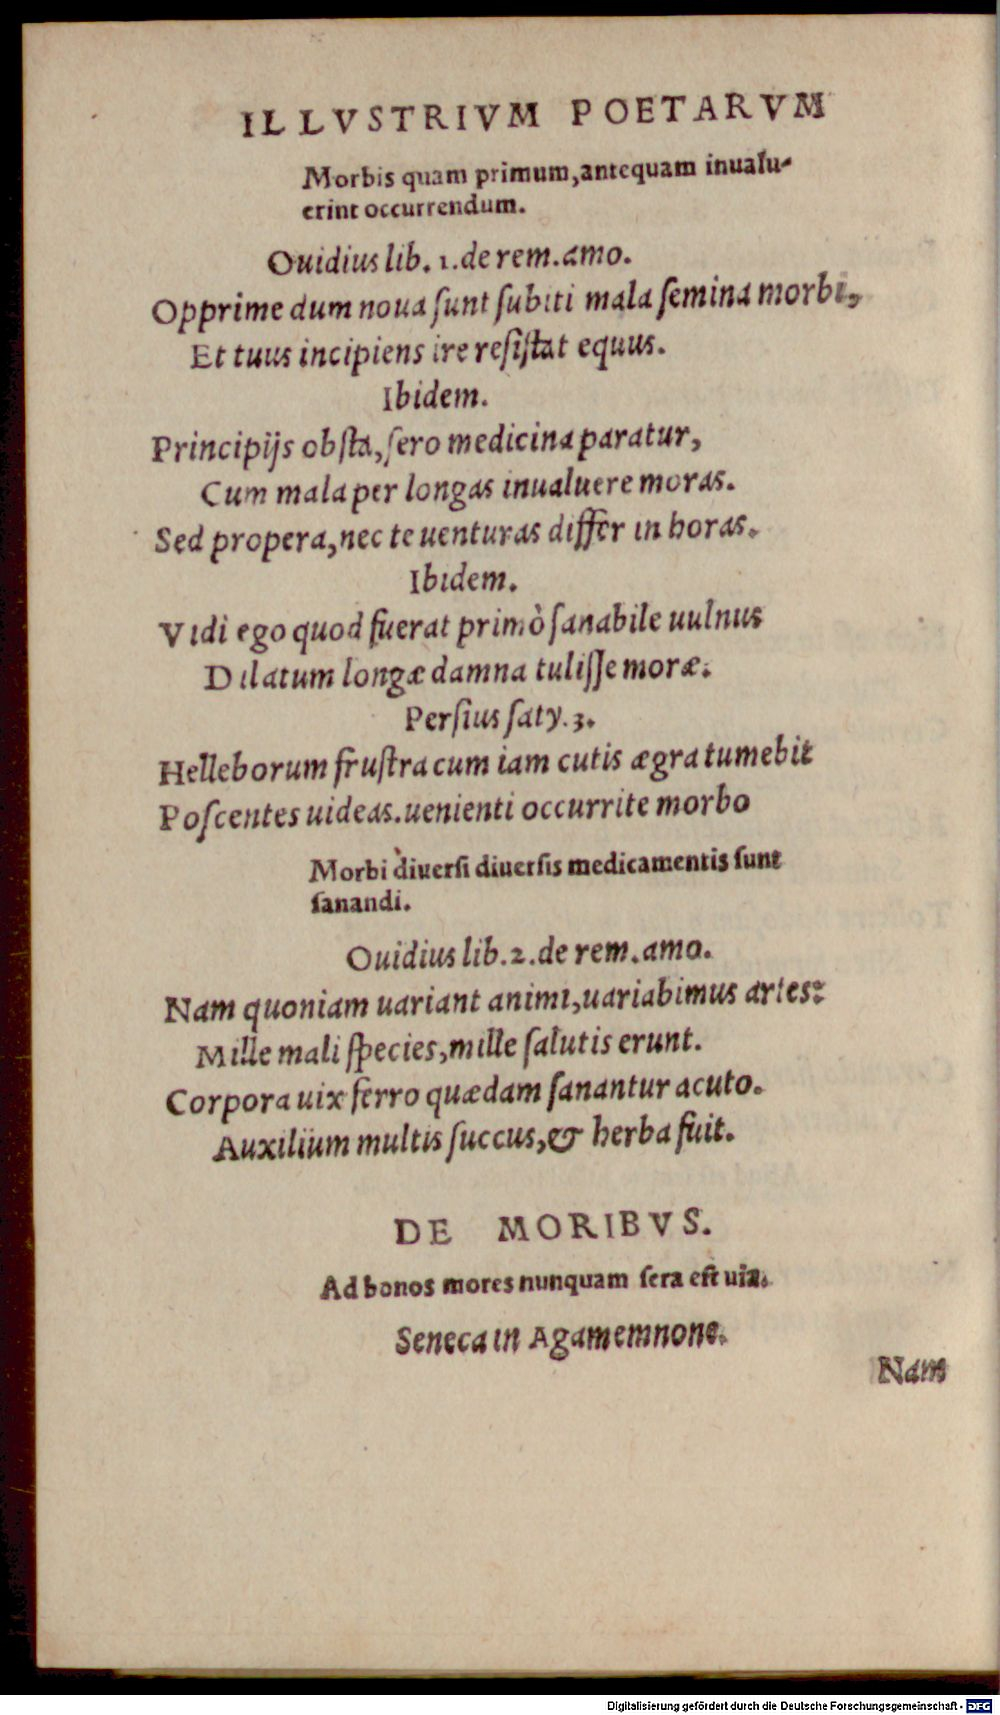 ILLVSTRIVM POETARVM
Morbis quam primum,antequam inualu-
erint occurrendum.
Ouidius lib. 1.de rem.amo.
Opprime dum noua ſunt ſubiti mala ſemina morbi,
Et tuus incipiens ire reſiſtat equus.
Ibidem.
Principijs obſta,ſero medicina paratur,
Cum mala per longas inualuere moras.
Sed propera,nec te uenturas differ in horas.
Ibidem.
Vidi ego quod fuerat primò ſanabile uulnus
Dilatum longæ damna tuliſſe moræ.
Perſius ſaty.3.
Helleborum fruſtra cum iam cutis ægra tumebit
Poſcentes uideas.uenienti occurrite morbo
Morbi diuerſi diuerſis medicamentis ſunt
ſanandi.
Ouidius lib.2.de rem.amo.
Nam quoniam uariant animi,uariabimus artes:
Mille mali ſpecies,mille ſalutis erunt.
Corpora uix ferro quædam ſanantur acuto.
Auxilium multis ſuccus,& herba fuit.
DE MORIBVS.
Ad bonos mores nunquam ſera eſt uia.
Seneca in Agamemnone.
Nam
Digitalisierung gefördert durch die Deutsche Forschungsgemeinschaft - DFG